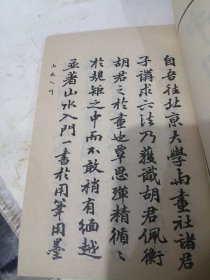 自吾在北京大學与畫社諸君
子講求六法乃獲識胡君佩衡
胡君之於畫也覃思殫精循循
於規矩之中而不敢稍有緬越
並著山水入門一書於用筆用墨
山水入門